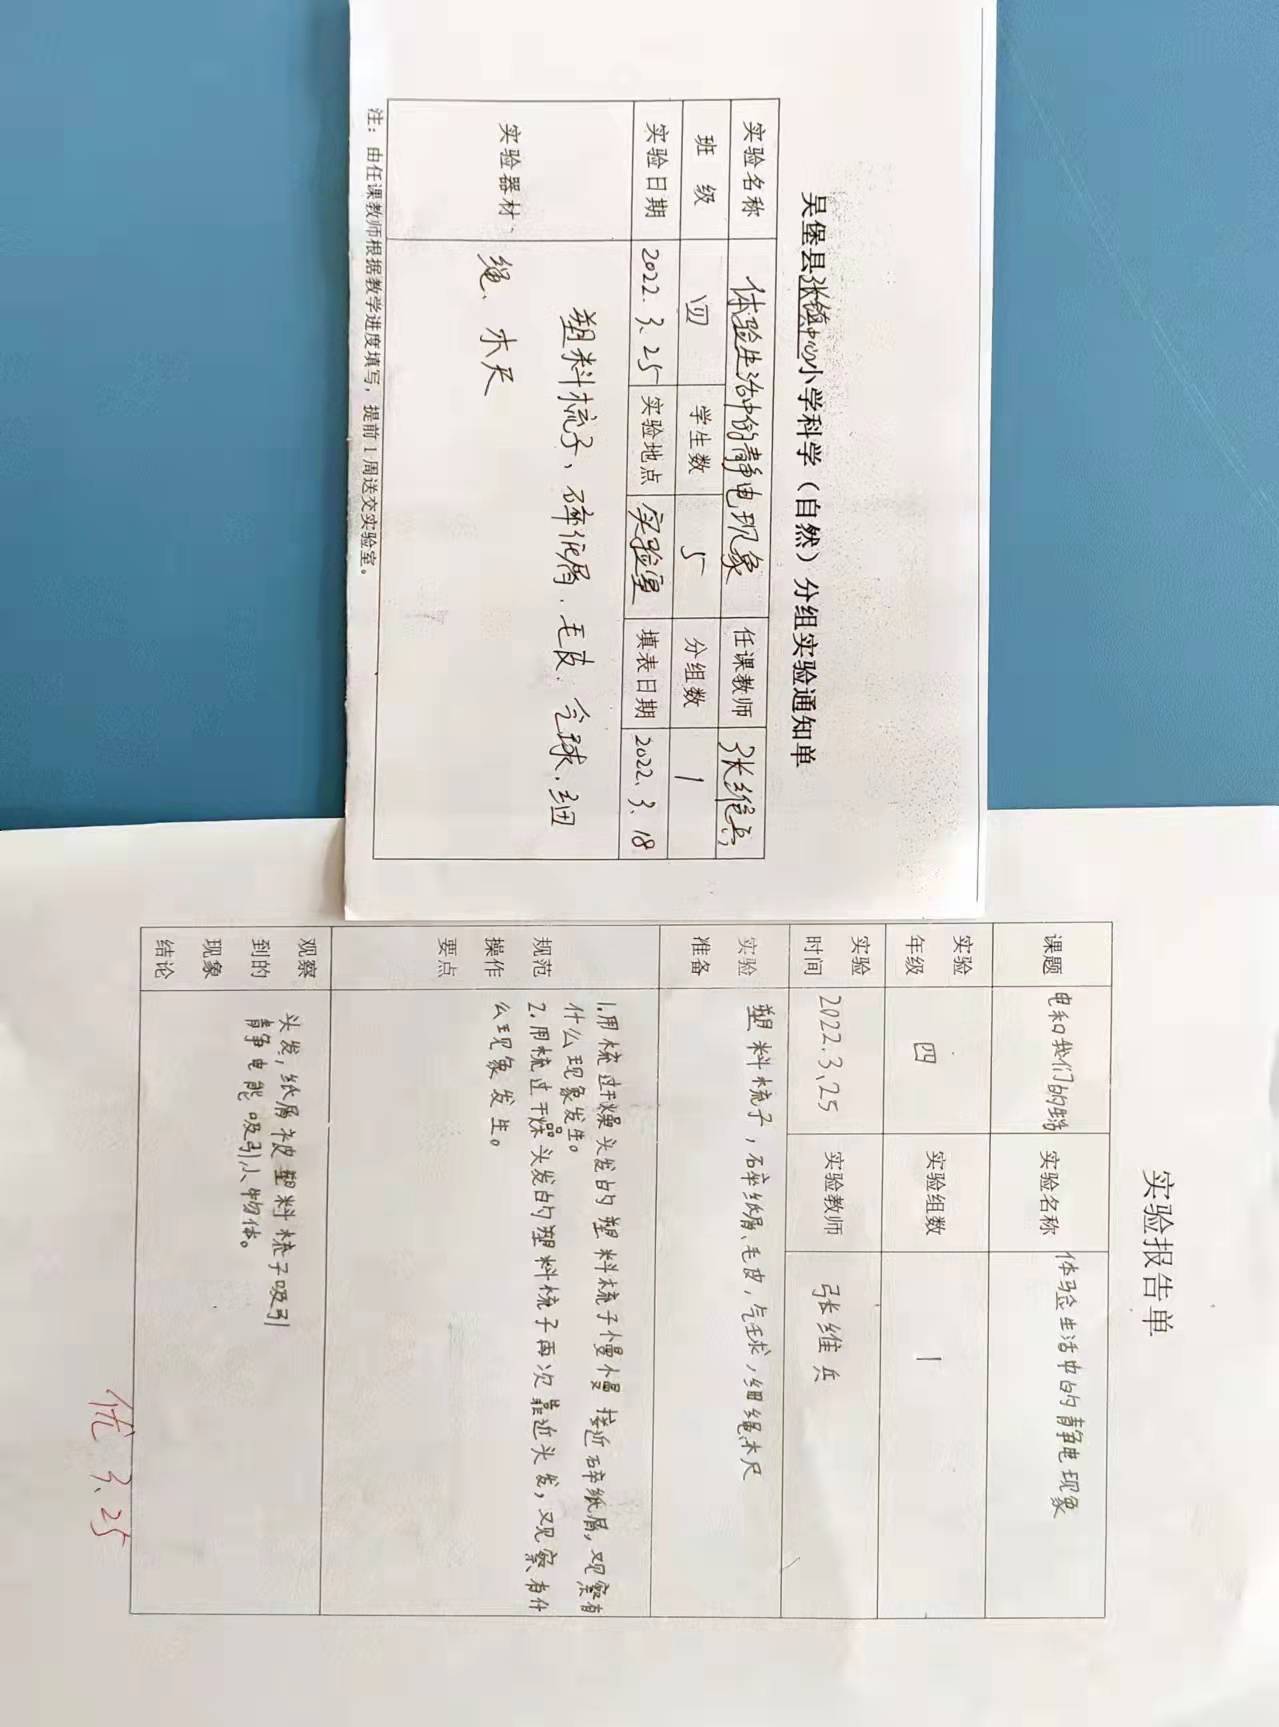 吴堡县张镇中心小学科学（自然）分组实验通知单
实验名称 体验生活中的静电现象 任课教师 张维兵
班 级 四 学生数 5 分组数 1
实验日期 2022.3.25 实验地点 实验室 填表日期 2022.3.18
实验器材 塑料梳子、碎纸屑、毛皮、气球、细
绳、木尺
注：由任课教师根据教学进度填写，提前1周送交实验室。
实验报告单
课题 电和我们的生活 实验名称 体验生活中的静电现象
实验年级 四 实验组数 1
实验时间 2022.3.25 实验教师 张维兵
实验准备 塑料梳子，碎纸屑、毛皮，气球，细绳、木尺
规范操作要点
1.用梳过干燥头发的塑料梳子慢慢接近碎纸屑，观察有
什么现象发生。
2.用梳过干燥头发的塑料梳子再次靠近头发，观察有什
么现象发生。
观察到的现象结论
头发，纸屑被塑料梳子吸引
静电能吸引小物体。
优 3.25